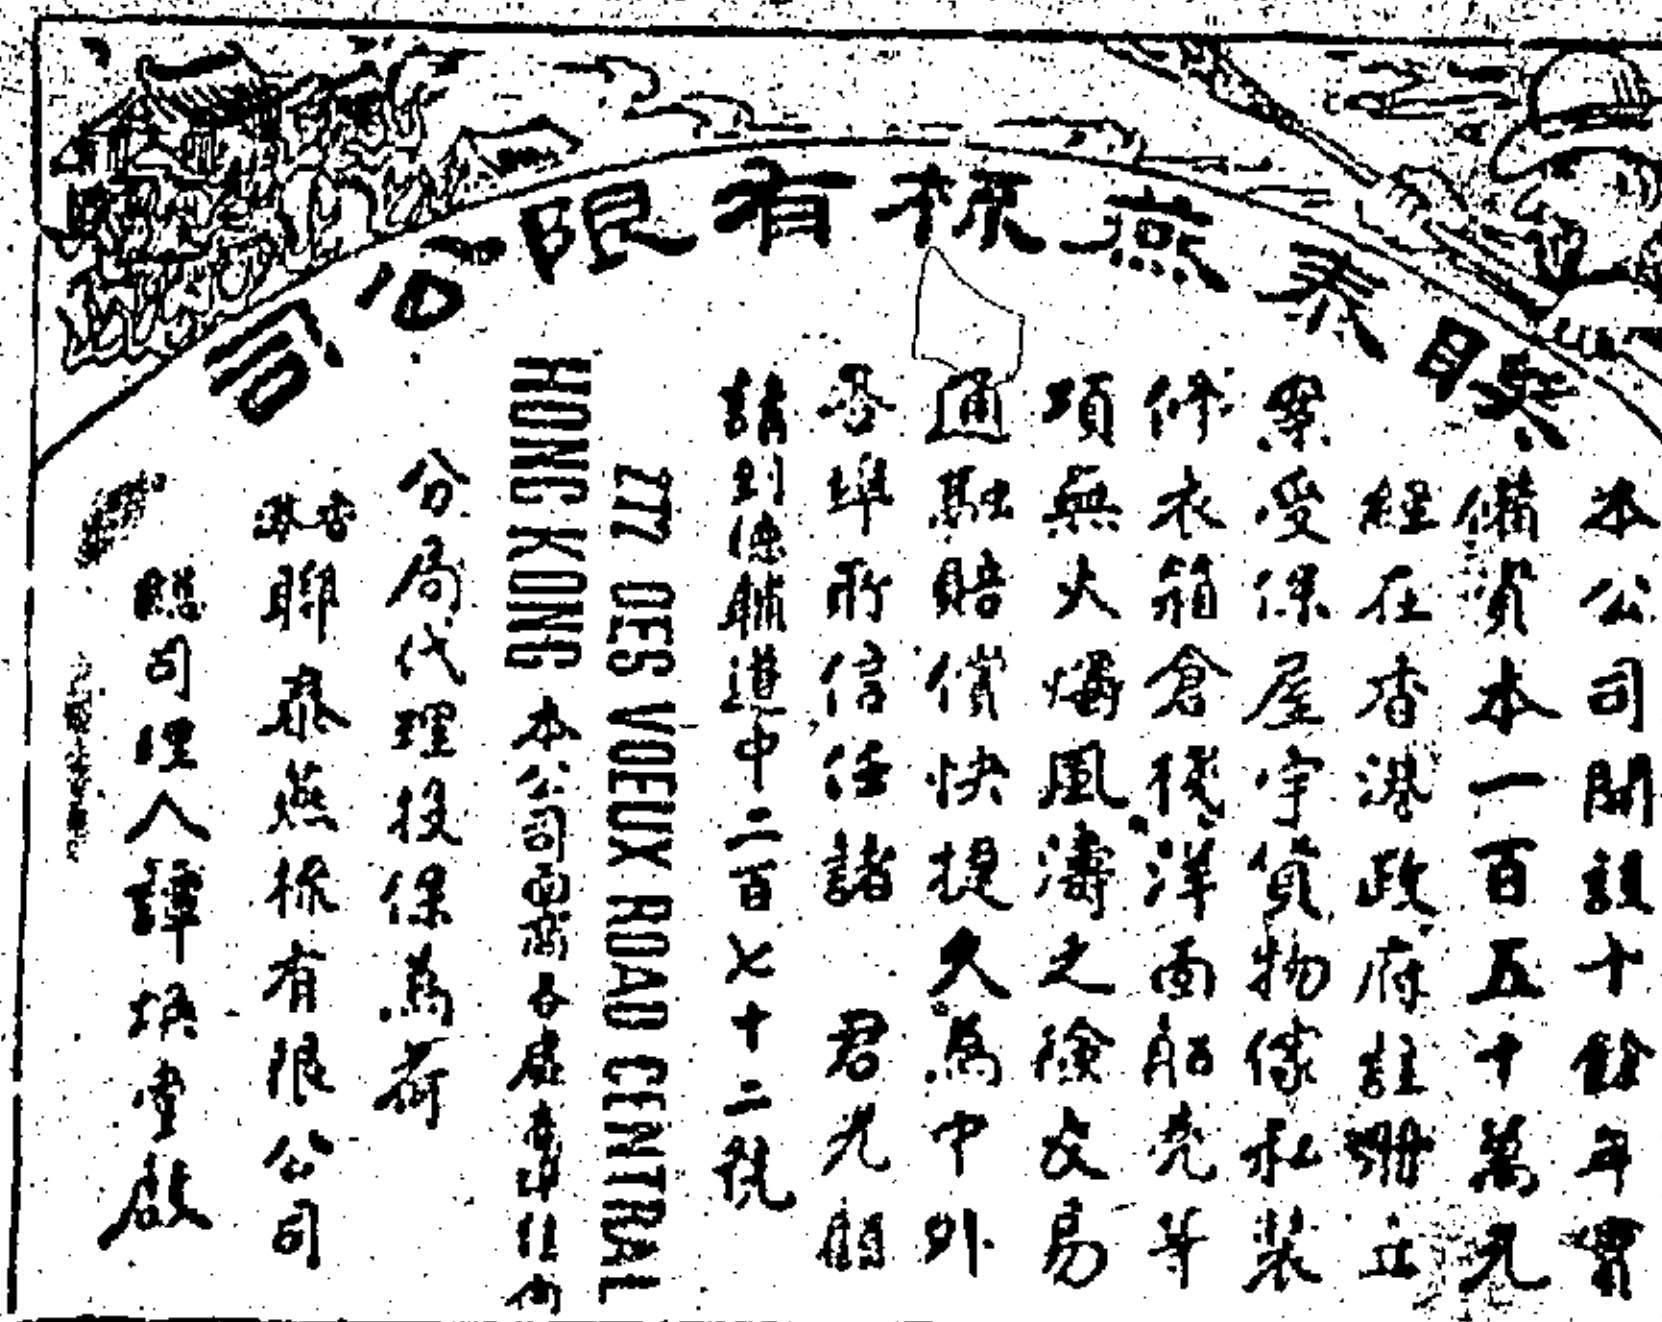 聯泰燕梳有限公司
本公司開設十餘年實
備資本一百五十萬元
經在香港政府註冊立
案受保屋宇貨物傢私裝
修衣箱倉棧洋面船売等
項無火燭風濤之險交易
通融賠償快捷久為中外
各埠所信任諸 君光顧
請到德輔道中二百七十二號
277 DES VOEUX ROAD CENTRAL
HONG KONG 本公司
分局代理投保為荷
香港聯泰燕梳有限公司
總司理人譚煥堂啟